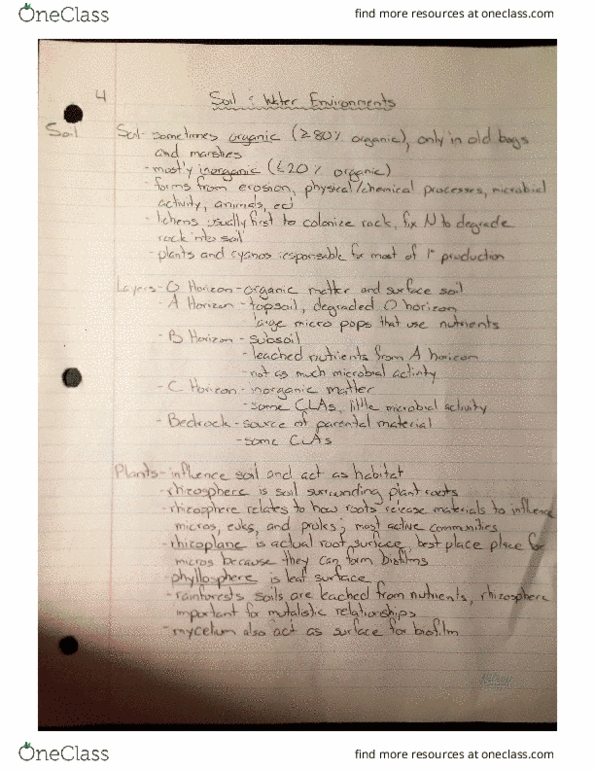 OneClass
find more resources at oneclass.com
4
Soil & Water Environments
Soil
Soil- sometimes organic (≥80% organic), only in old bogs
and marshes
- mostly inorganic (≤20% organic)
- forms from erosion, physical/chemical processes, microbial
activity, animals,
- lichens usually first to colonize rock, fix N to degrade
rock into soil
- plants and cyanos responsable for most of 1° production
Layers- O Horizon- organic matter and surface soil
- A Horizon - topsoil, degraded O horizon
- large micro pops that use nutrients
- B Horizon - subsoil
- leached nutrients from A horizon
- not as much microbial activity
- C Horizon - inorganic matter
- some CLAs, little microbial activity
- Bedrock - source of parental material
- some CLAs
Plants- influence soil and act as habitat
- rhizosphere is soil surrounding plant roots
- rhizosphere relates to how roots release materials to influence
micros, euks, and proks; most active communities
- rhizoplane is actual root surface, best place place for
micros because they can form biofilms
- phyllosphere is leaf surface
- rainforests soils are leached from nutrients, rhizosphere
important for mutalistic relationships
- mycelium also act as surface for biofilm
OneClass
find more resources at oneclass.com